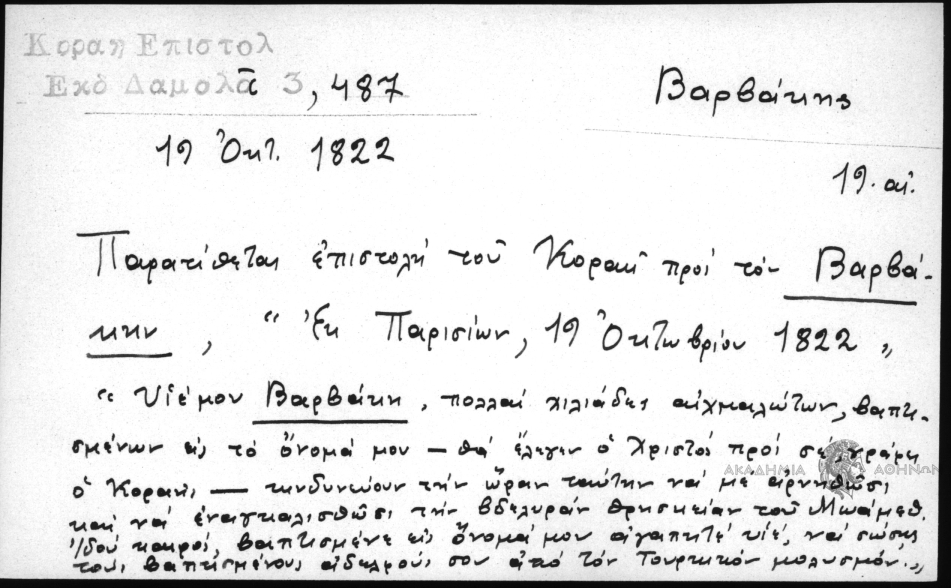 Κοραη Επιστολ
Εκδ Δαμολᾶ 3, 487
Βαρβάκης
19 Ὀκτ. 1822
19. αἰ.
Παρατίθεται ἐπιστολή τοῦ Κοραῆ πρός τόν Βαρβά-
κην, “Ἐκ Παρισίων, 19 Ὀκτωβρίου 1822„
“Υἱέ μου Βαρβάκη, πολλαί χιλιάδες αἰχμαλώτων, βαπτι-
σμένων εἰς τό ὄνομά μου — θά ἔλεγεν ὁ Χριστός πρός σέ, γράφει
ὁ Κοραῆς, — κινδυνεύουν τήν ὥραν ταύτην νά μέ ἀρνηθῶσι
καί νά ἐναγκαλισθῶσι τήν βδελυράν θρησκείαν τοῦ Μωάμεθ.
Ἰδού καιρός, βαπτισμένε εἰς ὄνομά μου ἀγαπητέ υἱέ, νά σώσῃς
τούς βαπτισμένους ἀδελφούς σου ἀπό τόν Τουρκικόν μολυσμόν.„
ΑΚΑΔΗΜΙΑ ΑΘΗΝΩΝ